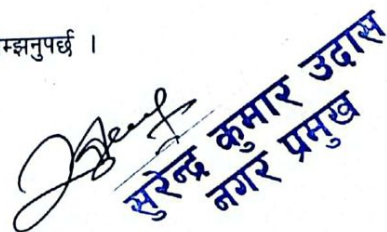 म्झनुपर्छ ।
सुरेन्द्र कुमार उदास
नगर प्रमुख